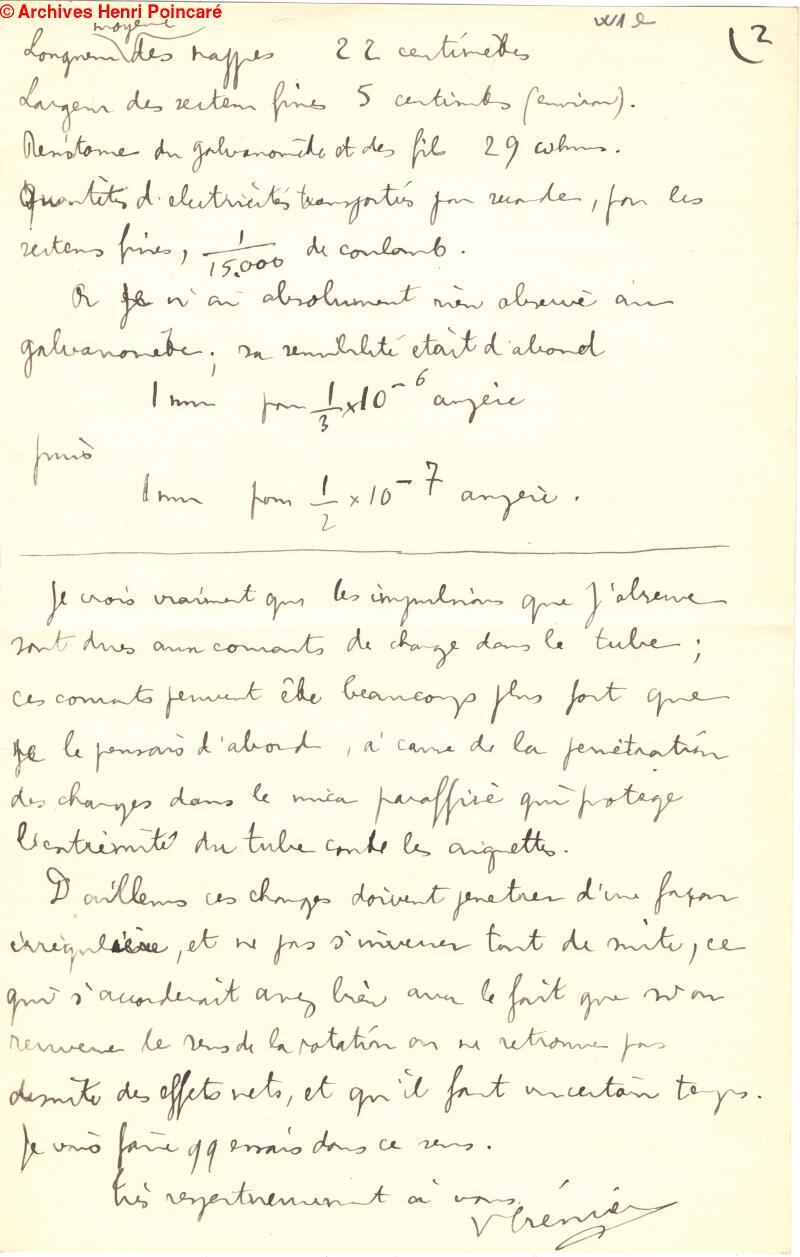 © Archives Henri Poincaré
2
moyenne
Longueur des nappes 22 centimètres
Largeur des secteurs fixes 5 centimètres (environ).
Résistance du galvanomètre et des fils 29 ohms.
Quantités d'électricités transportées par seconde, par les
secteurs fixes, 1/15.000 de coulomb.
Or Je n'ai absolument rien observé au
galvanomètre; sa sensibilité était d'abord
1 mm pour 1/3 × 10⁻⁶ ampère
puis
1 mm pour 1/2 × 10⁻⁷ ampère.
Je crois vraiment que les impulsions que j'observe
sont dues aux courants de charge dans le tube;
ces courants peuvent être beaucoup plus fort que
je le pensais d'abord, à cause de la pénétration
des charges dans le mica paraffiné qui protège
l'extrémité du tube contre les aigrettes.
D'ailleurs ces charges doivent pénétrer d'une façon
irrégulière, et ne pas s'inverser tout de suite, ce
qui s'accorderait assez bien avec le fait que si on
renverse le sens de la rotation on ne retrouve pas
de suite des effets nets, et qu'il faut un certain temps.
Je vais faire qq essais dans ce sens.
très respectueusement à vous
VCrémieu